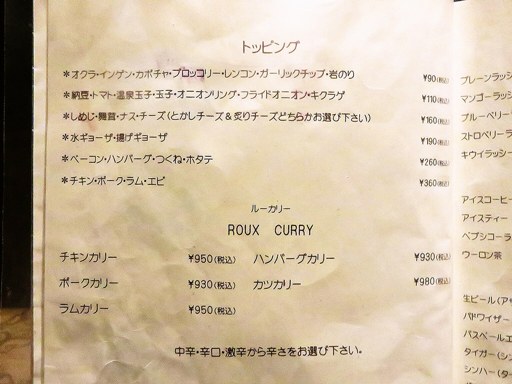 トッピング
＊オクラ・インゲン・カボチャ・ブロッコリー・レンコン・ガーリックチップ・岩のり ¥90(税込)
＊納豆・トマト・温泉玉子・玉子・オニオンリング・フライドオニオン・キクラゲ ¥110(税込)
＊しめじ・舞茸・ナス・チーズ(とかしチーズ＆炙りチーズどちらかお選び下さい) ¥160(税込)
＊水ギョーザ・揚げギョーザ ¥190(税込)
＊ベーコン・ハンバーグ・つくね・ホタテ ¥260(税込)
＊チキン・ポーク・ラム・エビ ¥360(税込)
ルーカリー
ROUX CURRY
チキンカリー ¥950(税込) ハンバーグカリー ¥930(税込)
ポークカリー ¥930(税込) カツカリー ¥980(税込)
ラムカリー ¥950(税込)
中辛・辛口・激辛から辛さをお選び下さい。
プレーンラッシ
マンゴーラッシ
ブルーベリー
ストロベリー
キウイラッシー
アイスコーヒー
アイスティー
ペプシコーラ
ウーロン茶
生ビール(アサ
バドワイザー
バスペールエ
タイガー(シン
シンハー(タ